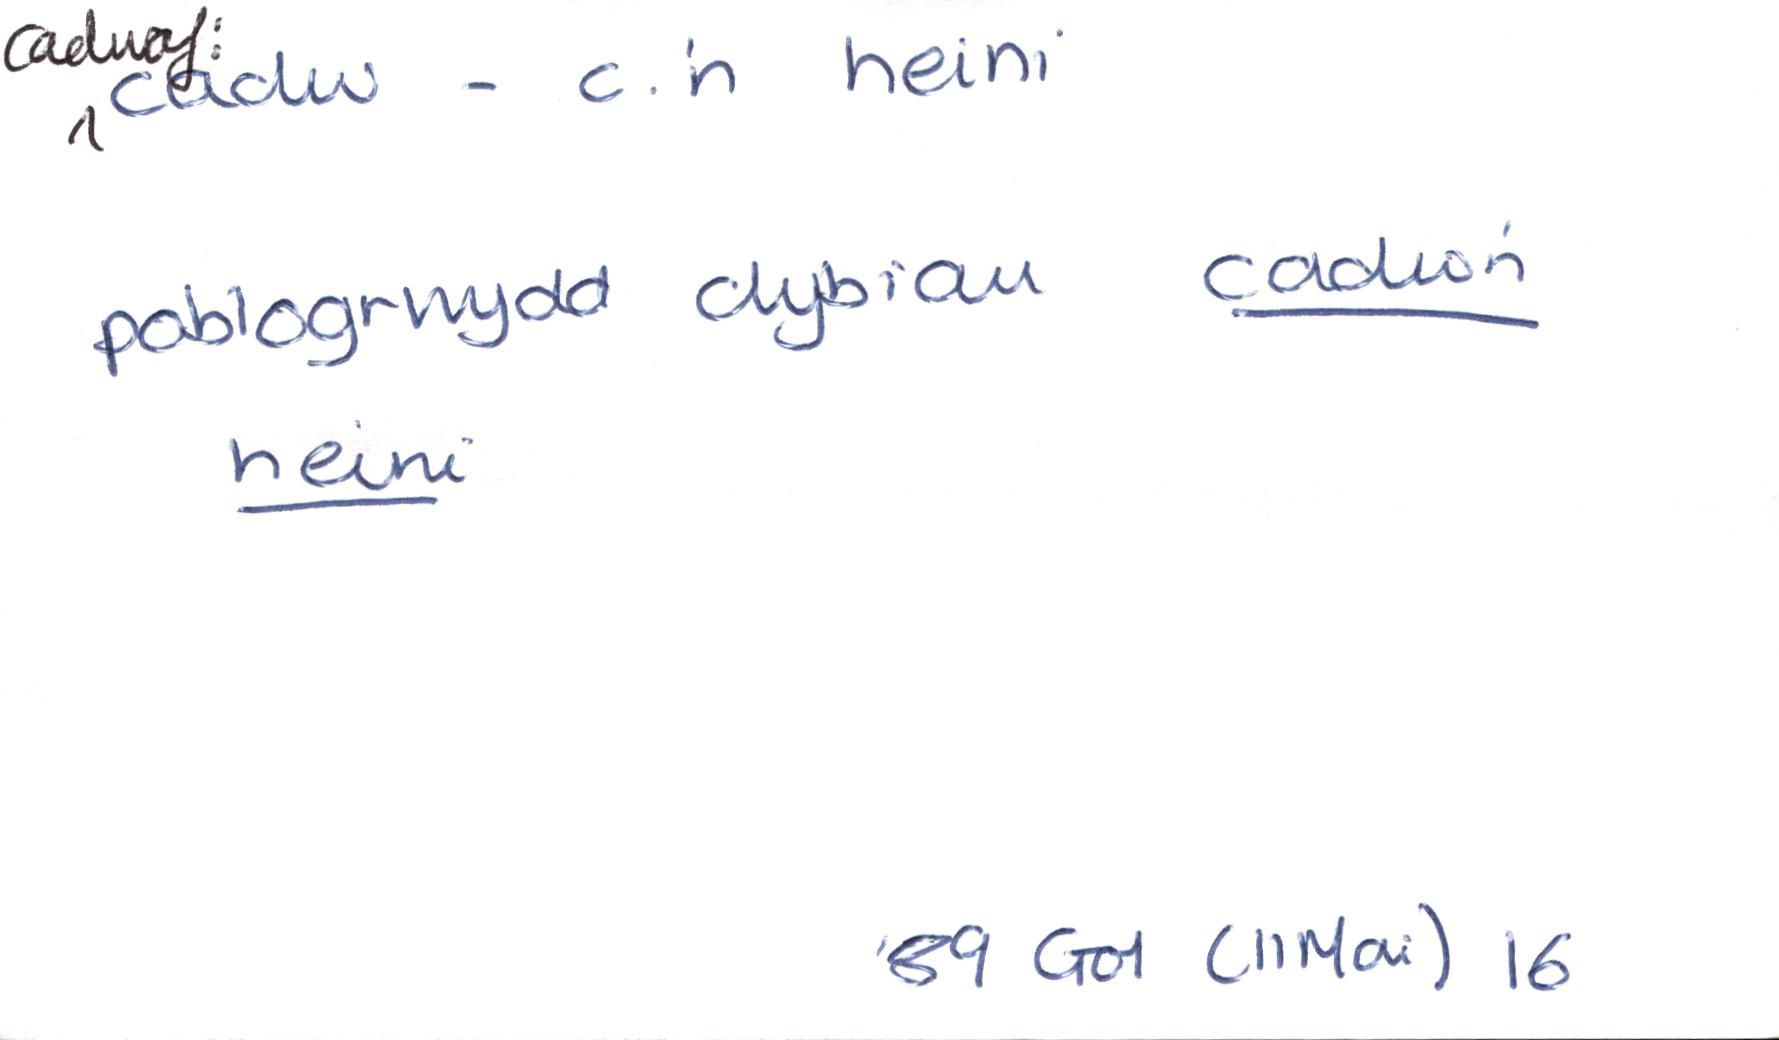 cadwaf:
cadw - c.'n heini
poblogrwydd clybiau cadw'n
heini
'89 Gol (11 Mai) 16